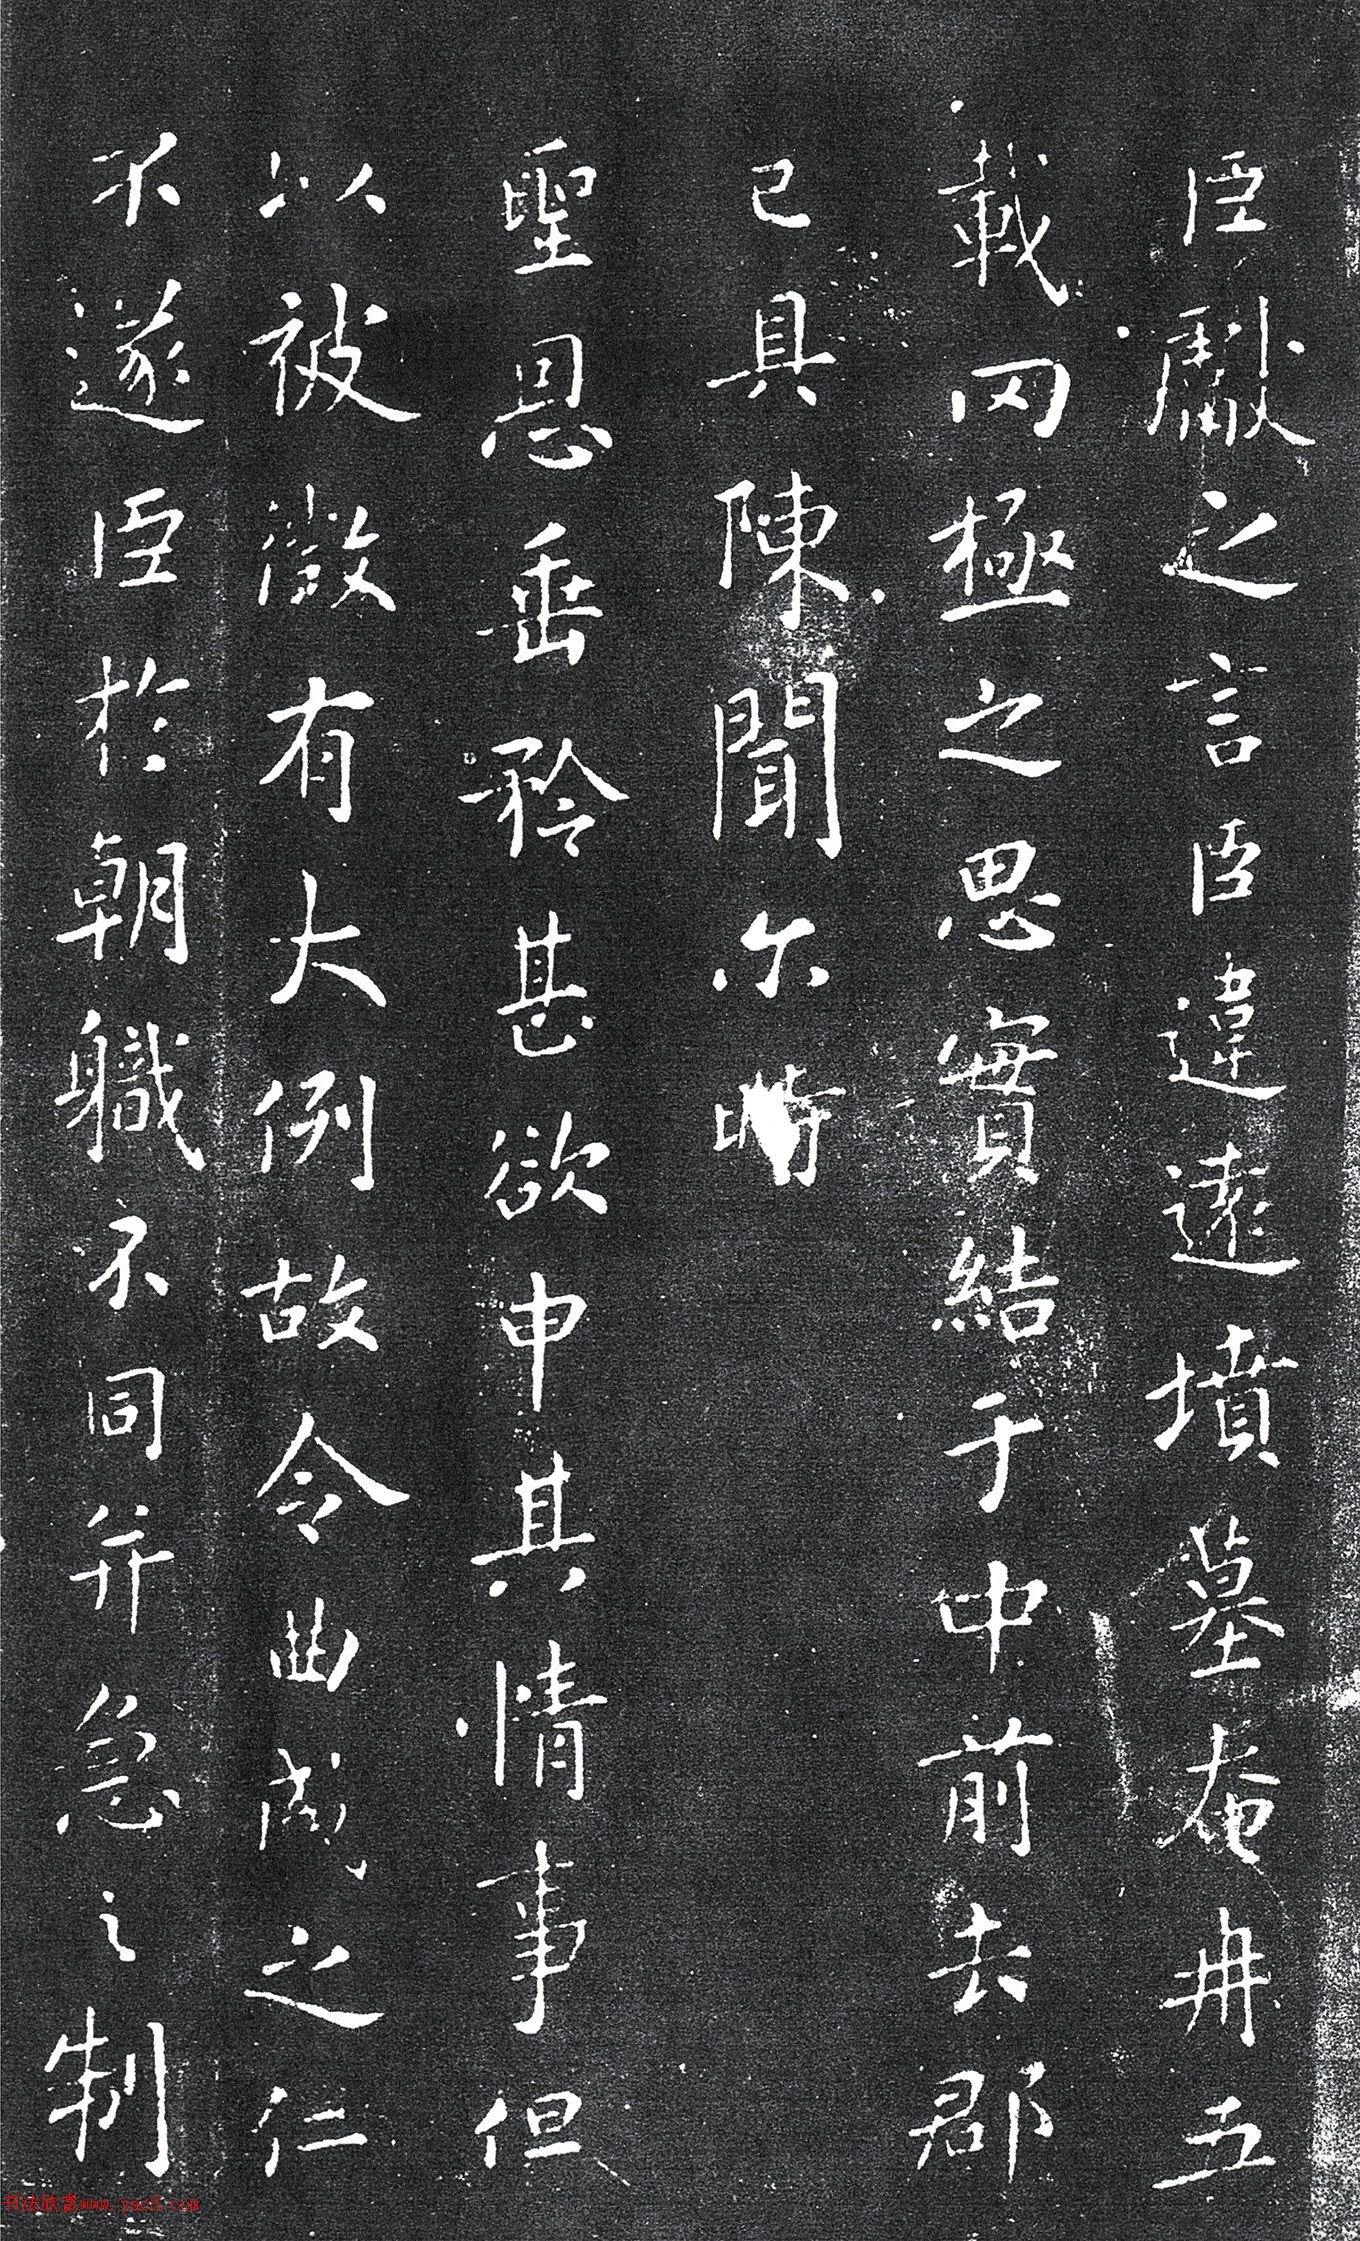 臣獻之言臣違遠墳墓奄冉五
載罔極之思實結于中前去郡
已具陳聞尒時
聖恩垂矜甚欲申其情事但
以被徵有大例故令曲成之仁
不遂臣於朝職不同并急之制
书法欣赏www.yac8.com